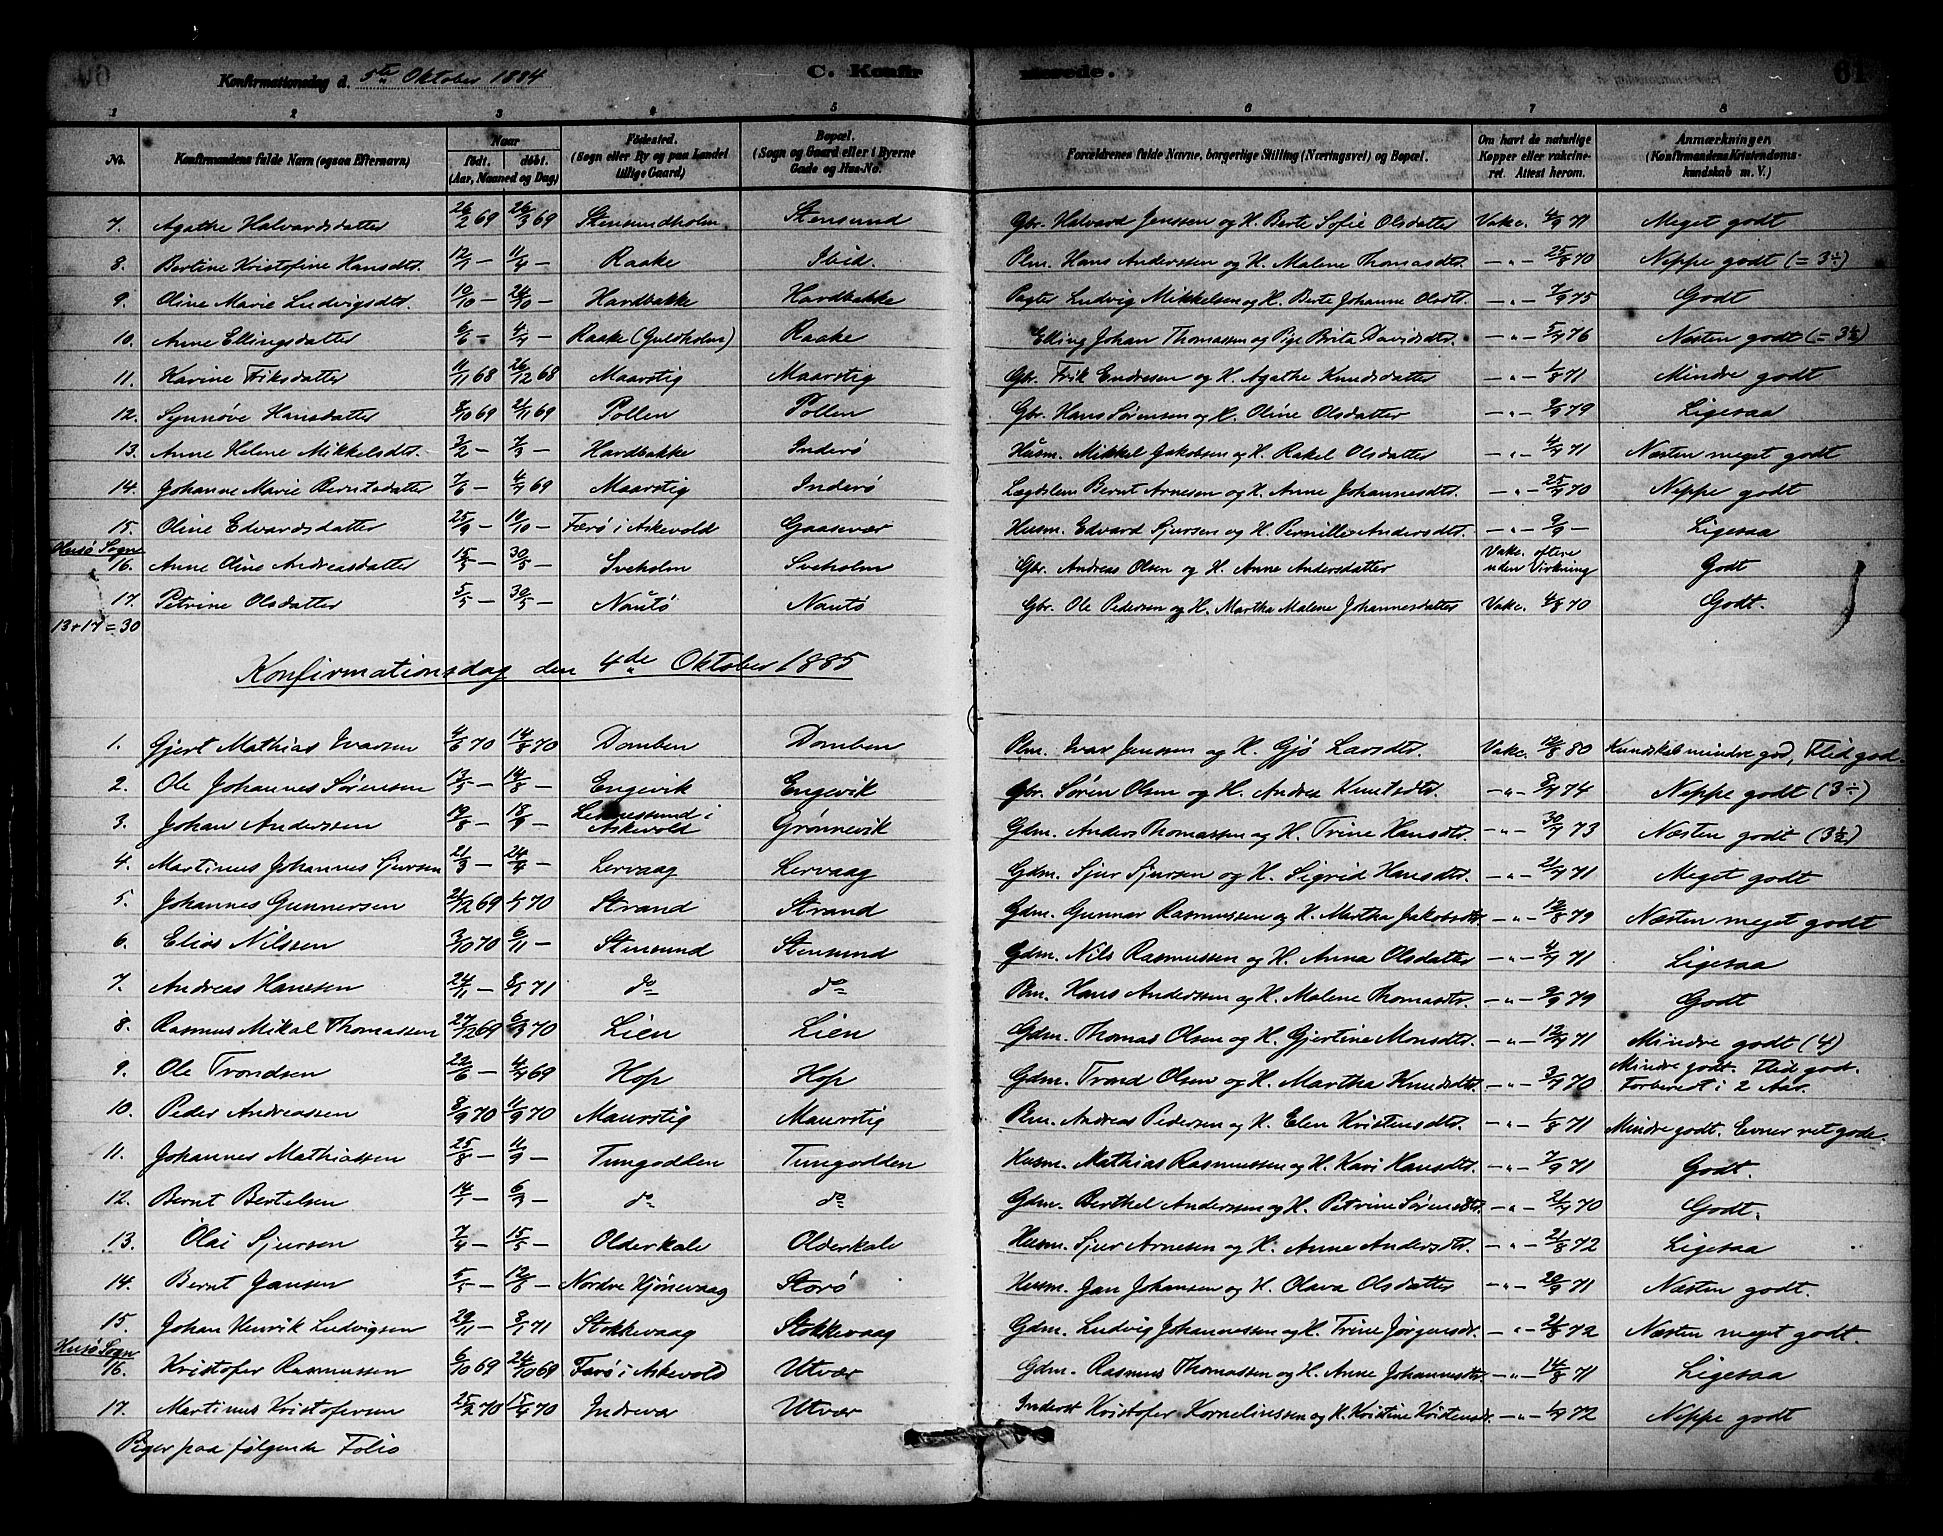 Konfirmationsdag d. 5te Oktober 1884 C. Konfirmerede. 61
1 2 3 4 5 6 7 8
No. Konfirmandens fulde Navn (ogsaa Efternavn) Naar født. døbt. (Aar, Maaned og Dag) Fødested. (Sogn eller By og paa Landet tillige Gaard) Bopæl. (Sogn og Gaard eller i Byerne Gade og Hus-No. Forældrenes fulde Navne, borgerlige Stilling (Næringsvei) og Bopæl. Om havt de naturlige Kopper eller vakcineret. Attest herom. Anmærkninger (Konfirmandens Kristendomskundskab m. V.)
7. Agathe Halvardsdatter 26/2 69 26/3 69 Stensundholm Stensund Gbr. Halvard Jenssen og H. Berte Sofie Olsdatter Vakc. 4/9 71 Meget godt
8. Bertine Kristofine Hansdtr. 12/1 — 11/4 — Raake Ibid. Plm. Hans Anderssen og H. Malene Thomasdtr. —"— 25/8 70 Neppe godt (= 3÷)
9. Oline Marie Ludvigsdtr. 10/10 — 24/10 — Hardbakke Hardbakke Pagter Ludvig Mikkelsen og H. Berte Johanne Olsdtr. —"— 7/9 75 Godt
10. Anne Ellingsdatter 6/6 — 4/7 — Raake (Guldholm) Raake Elling Johan Thomassen og Pige Brita Davidsdtr. —"— 5/7 76 Næsten godt (= 3½)
11. Karine Eriksdatter 11/11 68 26/12 68 Maarstig Maarstig Gbr. Erik Endresen og H. Agathe Knudsdatter —"— 1/8 71 Mindre godt
12. Synnøve Hansdatter 8/10 69 21/11 69 Pollen Pollen Gbr. Hans Sørensen og H. Oline Olsdatter —"— 9/9 79 Ligesaa
13. Anne Helene Mikkelsdtr. 3/2 — 7/3 — Hardbakke Inderø Husm. Mikkel Jakobsen og H. Rakel Olsdatter —"— 4/9 71 Næsten meget godt
14. Johanne Marie Berntsdatter 7/6 — 4/7 69 Maarstig Inderø Lægdslem Bernt Arnesen og H. Anne Johannesdtr. —"— 25/7 70 Neppe godt
15. Oline Edvardsdatter 25/9 — 10/10 — Færø i Askevold Gaasevær Husm. Edvard Sjursen og H. Pernille Andersdtr. —"— 9/9 — Ligesaa
Husø Sogn
16. Anne Oline Andreasdatter 15/5 — 30/5 — Sveholm Sveholm Gbr. Andreas Olsen og H. Anne Andersdatter Vakc. oftere uden Virkning Godt
17. Petrine Olsdatter 5/5 — 30/5 — Nautø Nautø Gbr. Ole Pedersen og H. Martha Malene Johannesdatter Vakc. 4/8 70 Godt.
13+17=30
Konfirmationsdag den 4de Oktober 1885
1. Gjert Mathias Ivarsen 4/6 70 14/8 70 Domben Domben Plm. Ivar Jenssen og H. Gjø Larsdtr. Vakc. 10/8 80 Kundskab mindre god, Flid god.
2. Ole Johannes Sørensen 13/5 — 14/8 — Engevik Engevik Gbr. Søren Olsen og H. Andrea Knutsdtr. —"— 9/7 74 Neppe godt (3÷)
3. Johan Anderssen 19/8 — 18/9 — i Askevold Grønnevik Gdm. Anders Thomassen og H. Trine Hansdtr. —"— 30/7 73 Næsten godt (3½)
4. Martinus Johannes Sjursen 21/3 — 24/4 — Lervaag Lervaag Gdm. Sjur Sjursen og H. Sigrid Hansdtr. —"— 21/7 71 Meget godt
5. Johannes Gunnersen 21/12 69 1/1 70 Strand Strand Gdm. Gunnar Rasmussen og H. Martha Jakobsdtr. —"— 12/8 79 Næsten meget godt
6. Elias Nilssen 3/10 70 6/11 — Stensund Stensund Gdm. Nils Rasmussen og H. Anna Olsdatter —"— 4/9 71 Ligesaa
7. Andreas Hanssen 24/11 — 8/1 71 do do Plm. Hans Anderssen og H. Malene Thomasdtr. —"— 9/9 79 Godt
8. Rasmus Mikal Thomassen 27/12 69 6/3 70 Lien Lien Gdm. Thomas Olsen og H. Gjertine Monsdtr. —"— 12/9 71 Mindre godt (4)
9. Ole Trondsen 22/6 — 4/7 69 Hop Hop Gdm. Trond Olsen og H. Martha Knudsdtr. —"— 3/7 70 Mindre godt. Flid god. Forberet i 2 Aar.
10. Peder Andreassen 8/9 70 11/9 70 Maurstig Maurstig Plm. Andreas Pedersen og H. Elen Kristensdtr. —"— 1/8 71 Mindre godt. Evner ret gode.
11. Johannes Mathiassen 25/8 — 11/9 — Tungodden Tungodden Husm. Mathias Rasmussen og H. Kari Hansdtr. —"— 7/9 71 Godt.
12. Bernt Bertelsen 14/1 — 6/3 — do do Gdm. Berthel Anderssen og H. Petrine Sørensdtr. —"— 21/7 70 Godt.
13. Olai Sjursen 7/4 — 15/5 — Olderkale Olderkale Husm. Sjur Arnesen og H. Anne Andersdtr. —"— 21/8 72 Ligesaa
14. Bernt Jansen 5/5 — 12/6 — Nordre Hjønevaag Storø Husm. Jan Johansen og H. Olava Olsdatter —"— 20/9 71 Næsten godt.
15. Johan Henrik Ludvigsen 29/11 — 8/1 71 Stokkevaag Stokkevaag Gdm. Ludvig Johannessen og H. Trine Jørgensdtr. —"— 21/8 72 Næsten meget godt.
Husø Sogn
16. Kristofer Rasmussen 6/10 69 24/10 69 Færø i Askevold Utvær Gdm. Rasmus Thomassen og H. Anne Johannesdtr. —"— 14/8 71 Ligesaa
17. Martinus Kristofersen 25/2 70 15/4 70 Indrevær Utvær Inderst Kristofer Korneliussen og H. Kristine Kristensdr. —"— 1/9 72 Neppe godt
Piger paa følgende Folio